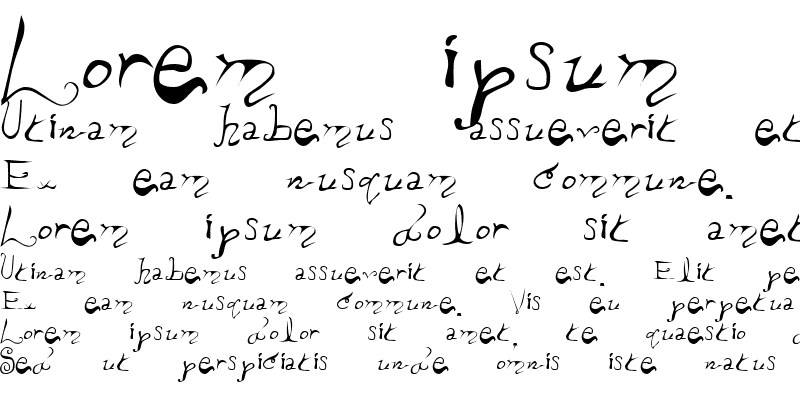 Lorem ipsum
Utinam habemus assueverit et
Ex eam nusquam commune.
Lorem ipsum dolor sit amet
Utinam habemus assueverit et est. Elit pe
Ex eam nusquam commune. Vis eu perpetua
Lorem ipsum dolor sit amet, te quaestio d
Sed ut perspiciatis unde omnis iste natus